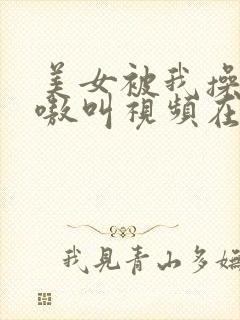 美女被我操
嗷叫視頻在
我見青山多嫵